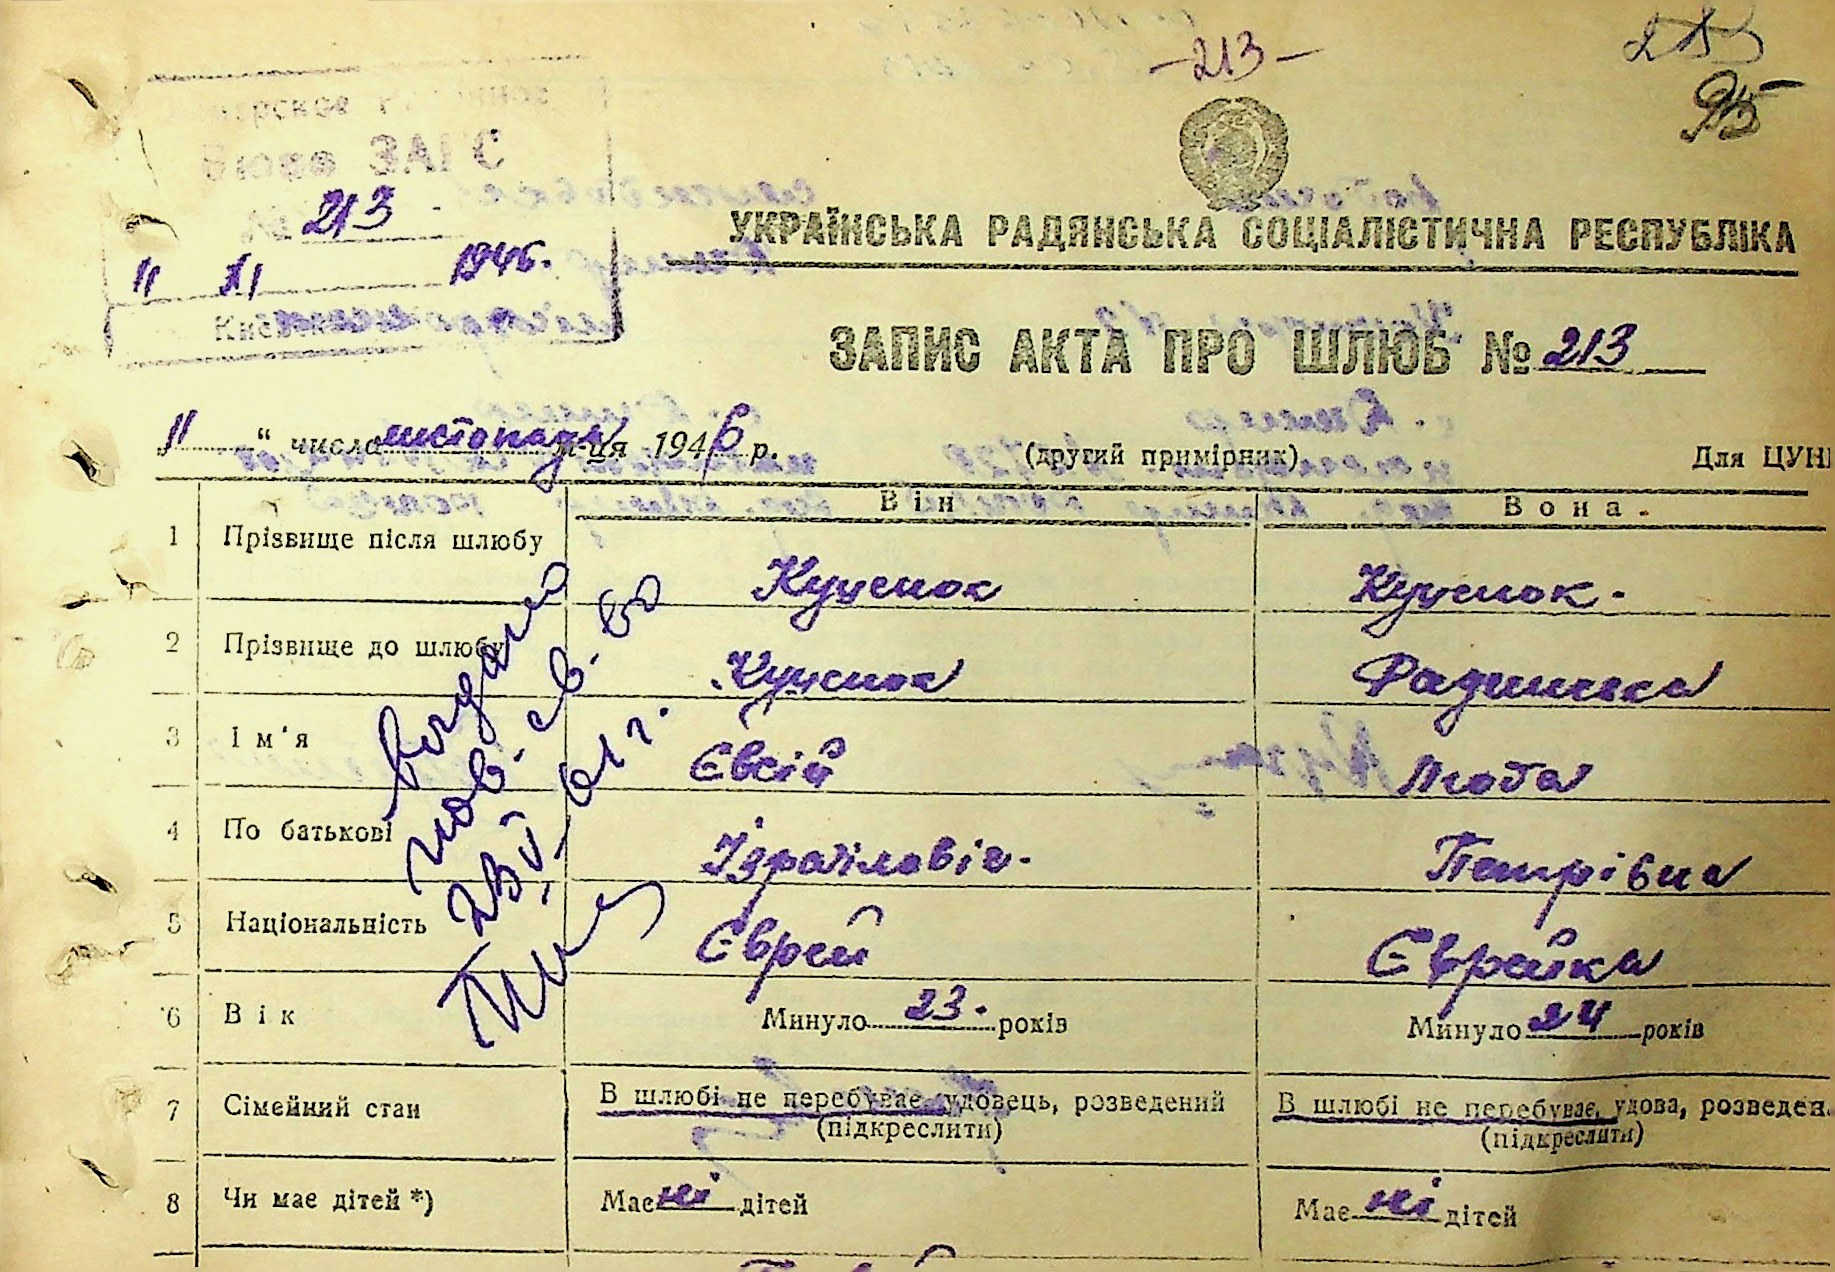 -213-
95
Бюро ЗАГС
№ 213
11 XI 1946.
УКРАЇНСЬКА РАДЯНСЬКА СОЦІАЛІСТИЧНА РЕСПУБЛІКА
ЗАПИС АКТА ПРО ШЛЮБ № 213
„11“ числа листопада м-ця 1946 р. (другий примірник) Для ЦУН
Він Вона
1 Прізвище після шлюбу Куценок Куценок
2 Прізвище до шлюбу Куценок
3 Ім'я Євсій Люба
4 По батькові Ізраїлевіч Петрівна
5 Національність Єврей Єврейка
6 Вік Минуло 23 років Минуло 24 років
7 Сімейний стан В шлюбі не перебуває, удовець, розведений (підкреслити) В шлюбі не перебуває, удова, розведен. (підкреслити)
8 Чи має дітей *) Має ні дітей Має ні дітей